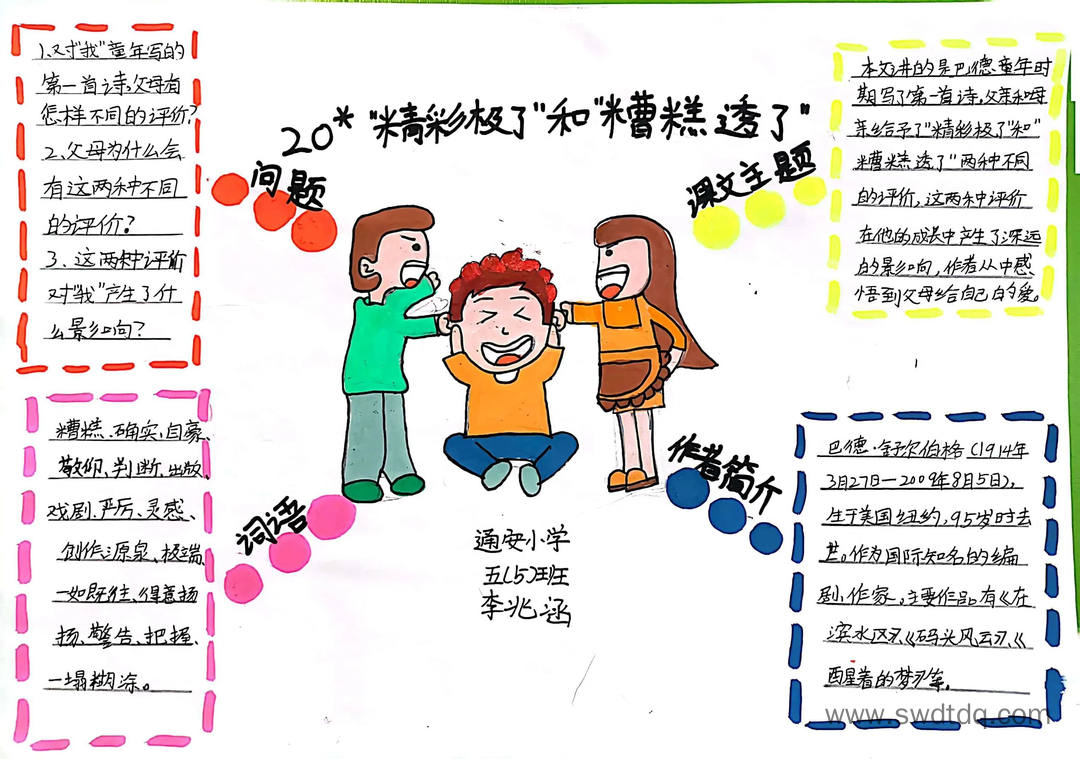 20* "精彩极了"和"糟糕透了"
问题
1、对"我"童年写的
第一首诗，父母有
怎样不同的评价？
2、父母为什么会
有这两种不同
的评价？
3、这两种评价
对"我"产生了什
么影响？
课文主题
本文讲的是巴德童年时
期写了第一首诗，父亲和母
亲给予了"精彩极了"和"
糟糕透了"两种不同
的评价，这两种评价
在他的成长中产生了深远
的影响，作者从中感
悟到父母给自己的爱。
词语
糟糕、确实、自豪、
敬仰、判断、出版、
戏剧、严厉、灵感、
创作、源泉、极端、
一如既往、得意扬
扬、警告、把握、
一塌糊涂。
作者简介
巴德·舒尔伯格（1914年
3月27日—2009年8月5日），
生于美国纽约，95岁时去
世。作为国际知名的编
剧、作家。主要作品有《在
滨水区》、《码头风云》、《
醒着的梦》等。
通安小学
五（5）班
李兆涵
www.swdtdq.com